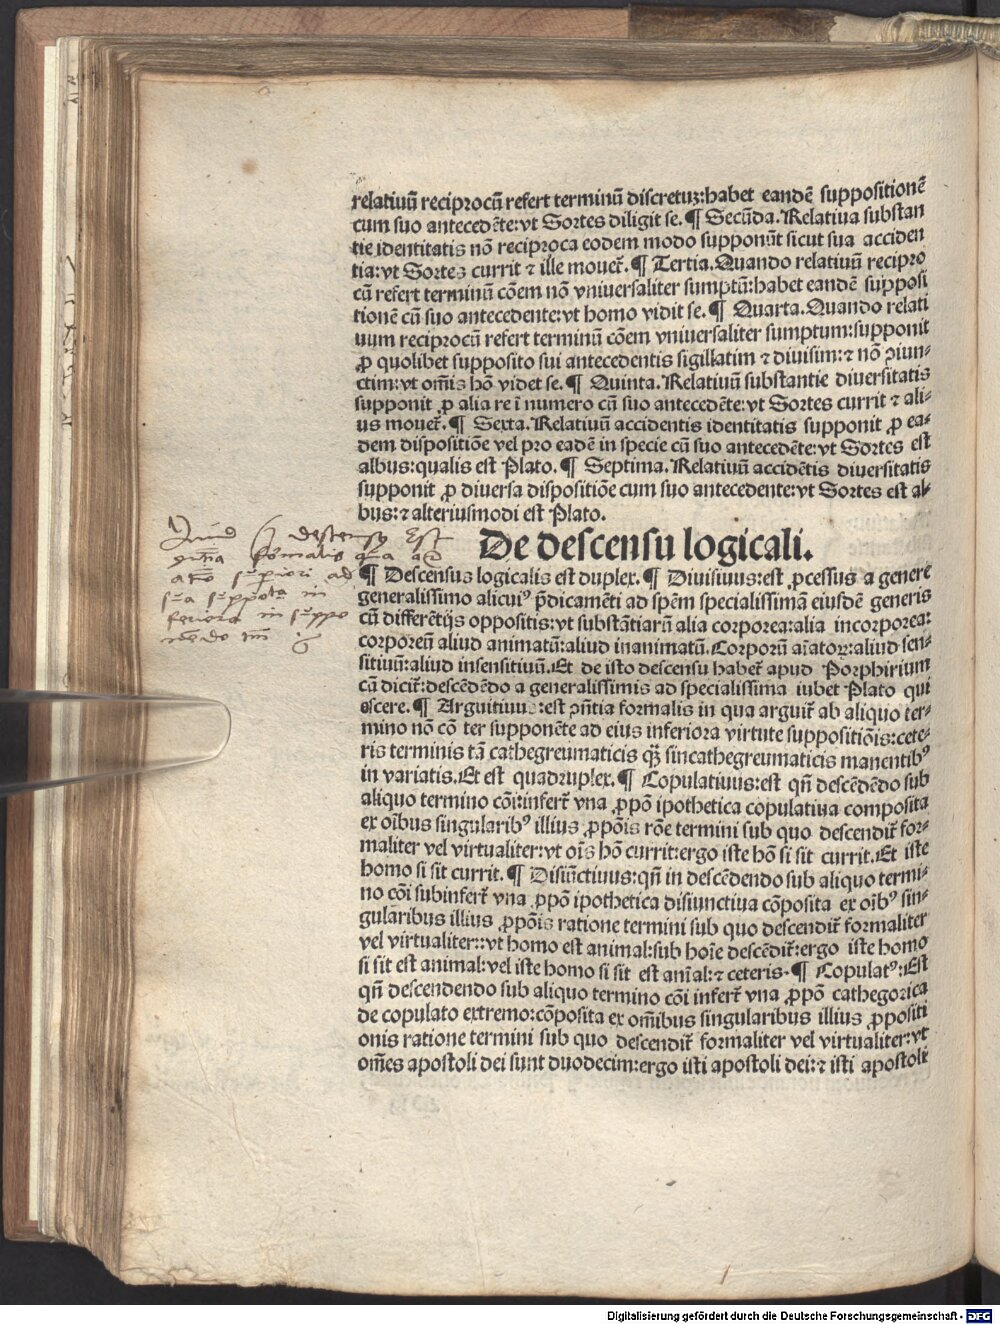 relatiuū reciprocū refert terminū discretuꝫ:habet eandē suppositionē
cum suo antecedēte:vt Sortes diligit se.¶ Secūda.Relatiua substan
tie identitatis nō reciproca eodem modo supponūt sicut sua acciden
tia:vt Sortes currit ⁊ ille mouet̄.¶ Tertia.Quando relatiuū recipro
cū refert terminū cōem nō vniuersaliter sumptū:habet eandē supposi
tionē cū suo antecedente:vt homo vidit se.¶ Quarta.Quando relati
uum reciprocū refert terminū cōem vniuersaliter sumptum:supponit
ꝓ quolibet supposito sui antecedentis sigillatim ⁊ diuisim:⁊ nō ꝯiun⸗
ctim:vt om̄is hō videt se.¶ Quinta.Relatiuū substantie diuersitatis
supponit ꝓ alia re ī numero cū suo antecedēte:vt Sortes currit ⁊ ali⸗
us mouet̄.¶ Sexta.Relatiuū accidentis identitatis supponit ꝓ ea⸗
dem dispositiōe vel pro eadē in specie cū suo antecedēte:vt Sortes est
albus:qualis est Plato.¶ Septima.Relatiuū accidētis diuersitatis
supponit ꝓ diuersa dispositiōe cum suo antecedente:vt Sortes est al⸗
bus:⁊ alteriusmodi est Plato.
De descensu logicali.
¶ Descensus logicalis est duplex.¶ Diuisiuus:est ꝓcessus a genere
generalissimo alicuiꝰ p̄dicamēti ad spēm specialissimā eiusdē generis
cū differētijs oppositis:vt substātiarū alia corporea:alia incorporea:
corporeū aliud animatū:aliud inanimatū.Corporū aīatoꝝ:aliud sen⸗
sitiuū:aliud insensitiuū.Et de isto descensu habet̄ apud Porphirium
cū dicit̄:descēdēdo a generalissimis ad specialissima iubet Plato qui
escere.¶ Arguitiuus:est ꝯn̄tia formalis in qua arguit̄ ab aliquo ter⸗
mino nō cō ter supponēte ad eius inferiora virtute suppositiōis:cete⸗
ris terminis tā cathegreumaticis qꝫ̄ sincathegreumaticis manentibꝰ
in variatis.Et est quadruplex.¶ Copulatiuus:est qn̄ descēdēdo sub
aliquo termino cōi:infert̄ vna ꝓpō ipothetica copulatiua composita
ex oībus singularibꝰ illius ꝓpōis rōe termini sub quo descendit̄ for⸗
maliter vel virtualiter:vt oīs hō currit:ergo iste hō si sit currit.Et iste
homo si sit currit.¶ Disiūctiuus:qn̄ in descēdendo sub aliquo termi⸗
no cōi subinfert̄ vna ꝓpō ipothetica disiunctiua cōposita ex oībꝰ sin⸗
gularibus illius ꝓpōis ratione termini sub quo descendit̄ formaliter
vel virtualiter::vt homo est animal:sub hoīe descēdit̄:ergo iste homo
si sit est animal:vel iste homo si sit est anīal:⁊ ceteris.¶ Copulatꝰ:Est
qn̄ descendendo sub aliquo termino cōi infert̄ vna ꝓpō cathegorica
de copulato extremo:cōposita ex om̄ibus singularibus illius ꝓpositi
onis ratione termini sub quo descendit̄ formaliter vel virtualiter:vt
om̄es apostoli dei sunt duodecim:ergo isti apostoli dei:⁊ isti apostoli
descensus Est
Digitalisierung gefördert durch die Deutsche Forschungsgemeinschaft - DFG